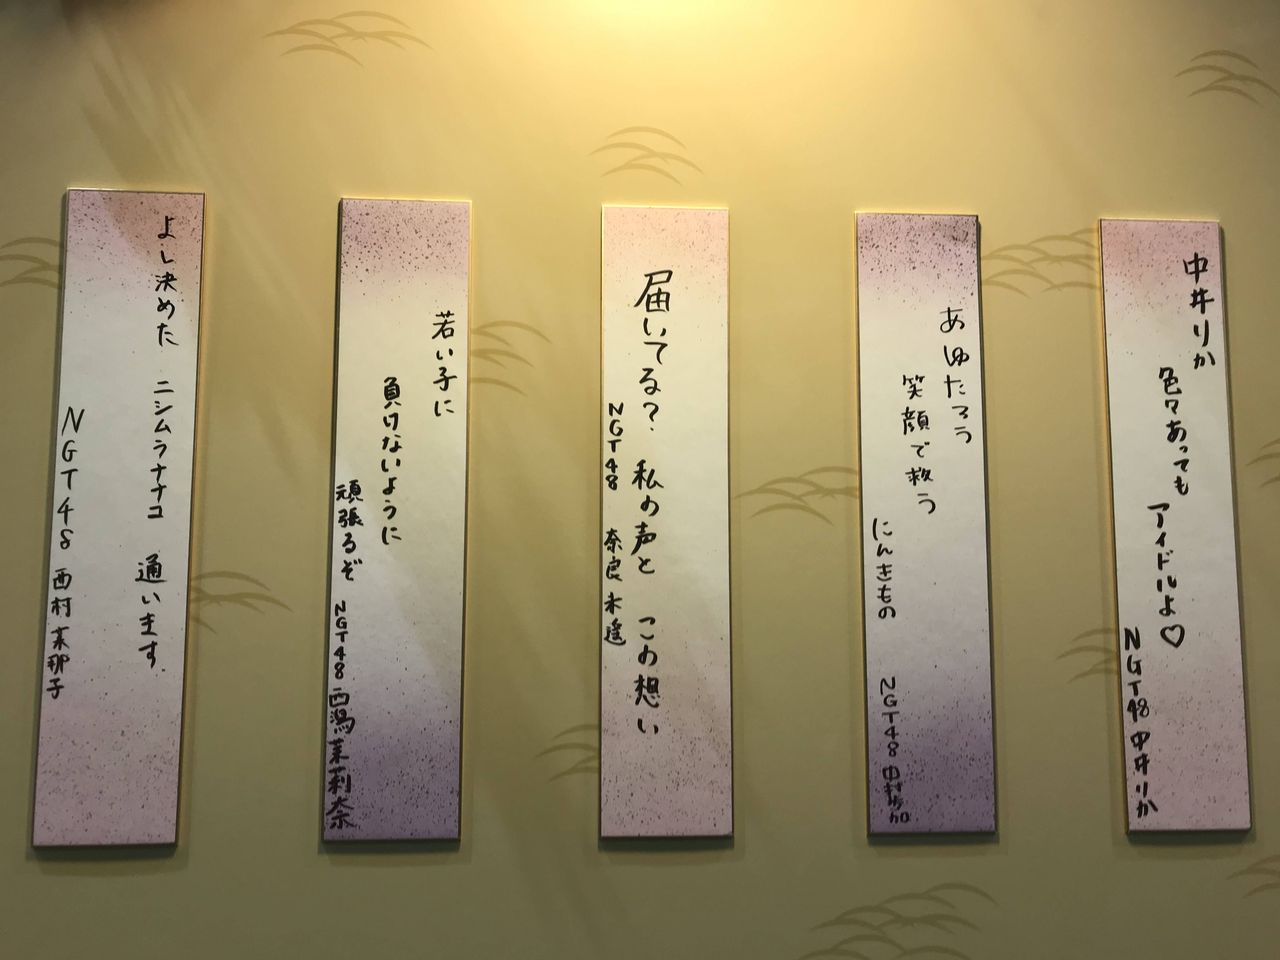 中井りか
色々あっても
アイドルよ♡
NGT48 中井りか
あゆたろう
笑顔で救う
にんきもの
NGT48 中村歩加
届いてる? 私の声と この想い
NGT48 奈良未遥
若い子に
負けないように
頑張るぞ
NGT48 西潟茉莉奈
よし決めた ニシムラナナコ 通います.
NGT48 西村菜那子